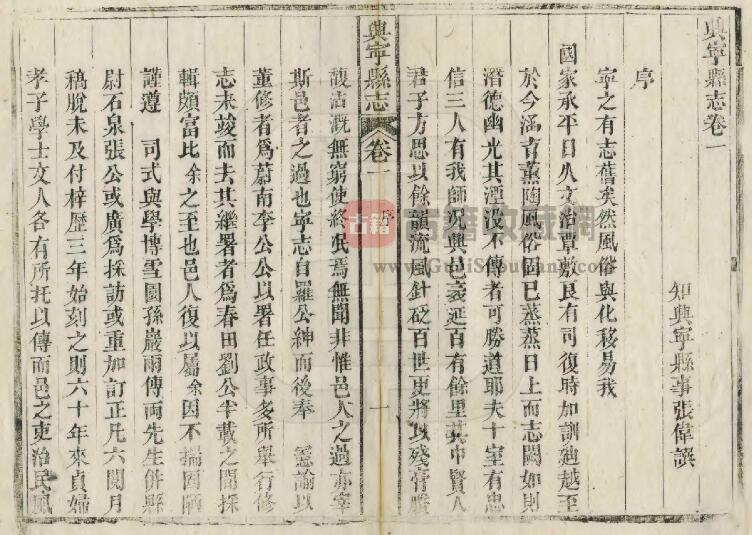 興寧縣志卷一
序
知興寧縣事張偉譔
寧之有志舊矣然風俗與化移易我
國家承平日久文治覃敷良有司復時加訓廸越至
於今涵育薰陶風俗固已蒸蒸日上而志闕如則
潛德幽光其湮没不傳者可勝道耶夫十室有忠
信三人有我師况興邑袤延百有餘里其中賢人
君子方思以餘韻流風針砭百世更將以殘膏賸
興寧縣志
卷一
序
一
馥沾溉無窮使終泯焉無聞非惟邑人之過亦宰
斯邑者之過也寧志自羅公紳而後奉 憲諭以
董修者爲蔚南李公公以署任政事多所舉行修
志未竣而去其繼署者爲春田劉公半載之間採
輯頗富比余之至也邑人復以屬余因不揣固陋
謹遵 司式與學博雪園孫巖雨傅兩先生併縣
尉石泉張公或廣爲採訪或重加訂正凡六閱月
稿脫未及付梓歷三年始刻之則六十年來貞婦
孝子學士文人各有所托以傳而邑之吏治民風
古籍收藏網
www.GujiShoucang.com